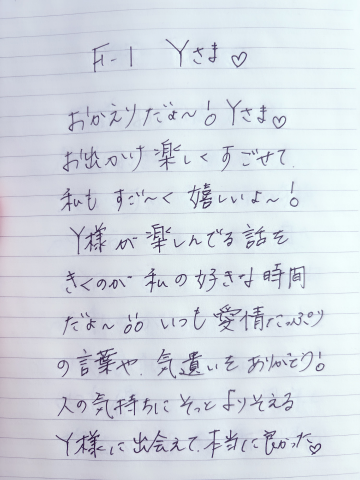 F-1 Yさま♡
おかえりだよ〜! Yさま♡
お出かけ楽しくすごせて
私もすご〜く嬉しいよ〜!
Y様が楽しんでる話を
きくのが私の好きな時間
だよ〜!! いつも愛情たっぷり
の言葉や、気遣いをありがとう!
人の気持ちにそっとよりそえる
Y様に出会えて、本当に良かった♡